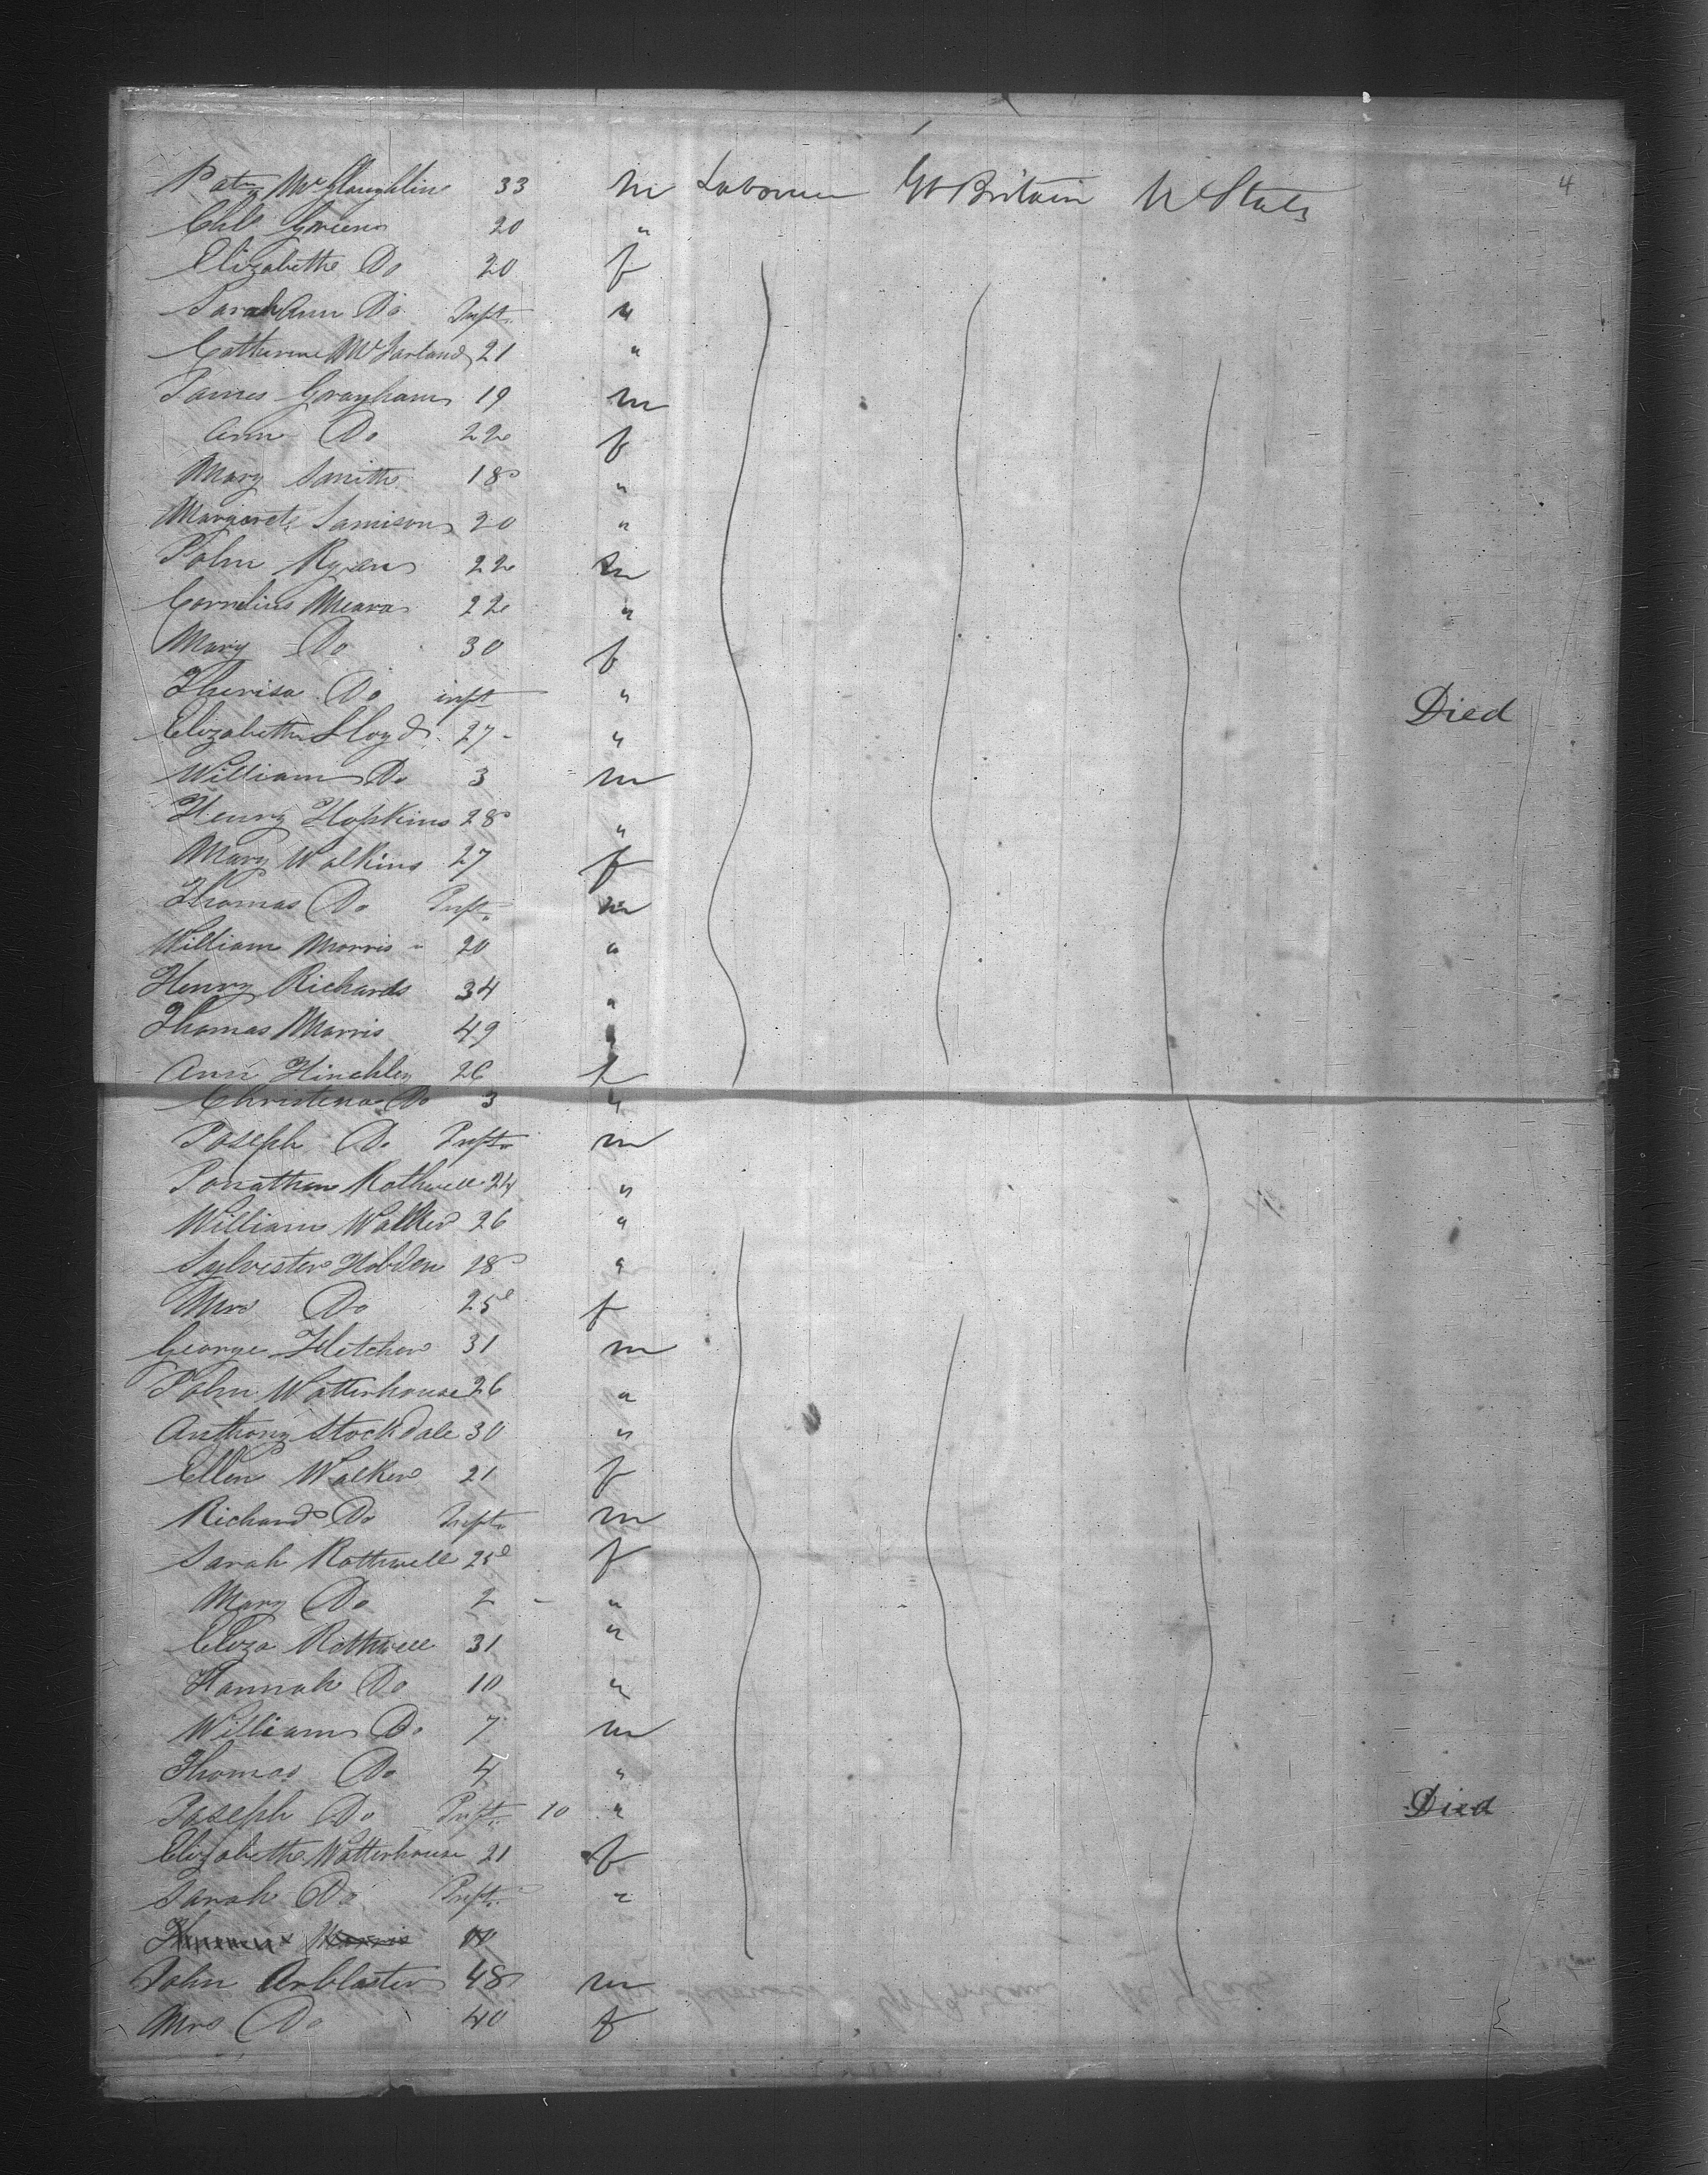 4
Pat McGlaughlin 33 m Labourer Gt Britain U States
Chls Greens 20 "
Elizabeth Do 20 f
Sarah Ann Do Inft "
Catherine McFarland 21 "
James Grayham 19 m
Ann Do 22 f
Mary Smith 18 "
Margaret Jamison 20 "
John Ryan 22 m
Cornelius Meara 22 "
Mary Do 30 f
Therisa Do inft " Died
Elizabeth Lloyd 27 "
William Do 3 m
Henry Hopkins 28 "
Mary Walkins 27 f
Thomas Do Inft m
William Morris 20 "
Henry Richards 34 "
Thomas Morris 49
Ann Hinchley 26 f
Christena Do 3 "
Joseph Do Inft m
Jonathan Rothwell 24 "
William Walker 26 "
Sylvester Hobden 28 "
Mrs Do 25 f
George Fletcher 31 m
John Watterhouse 26 "
Anthony Stockdale 30 "
Ellen Walker 21 f
Richard Do Inft m
Sarah Rothwell 25 f
Mary Do 2 "
Eliza Rothwell 31 "
Hannah Do 10 "
William Do 7 m
Thomas Do 4 "
Joseph Do Inft 10 " Died
Elizabeth Watterhouse 21 f
Sarah Do Inft "
John Arblaster 48 m
Mrs Do 40 f